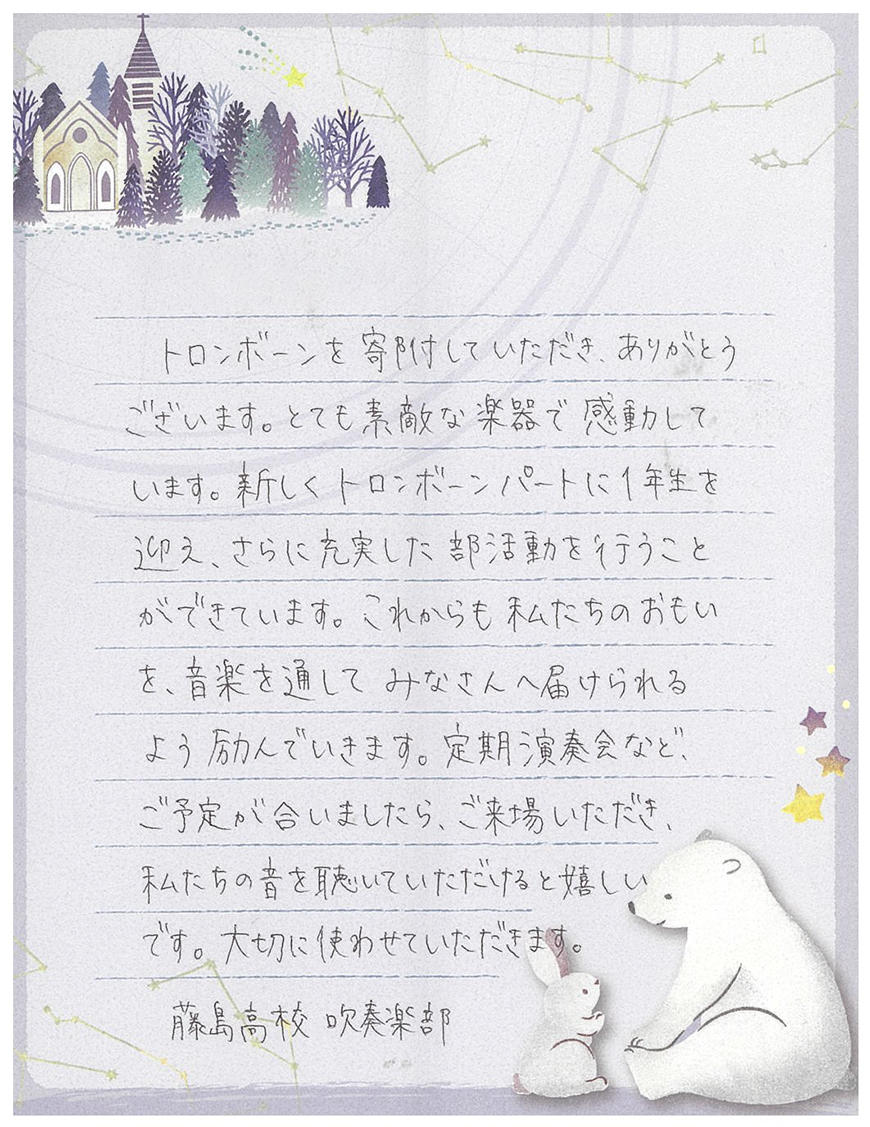 トロンボーンを寄附していただき、ありがとう
ございます。とても素敵な楽器で感動して
います。新しくトロンボーンパートに1年生を
迎え、さらに充実した部活動を行うこと
ができています。これからも私たちのおもい
を、音楽を通してみなさんへ届けられる
よう励んでいきます。定期演奏会など、
ご予定が合いましたら、ご来場いただき、
私たちの音を聴いていただけると嬉しい
です。大切に使わせていただきます。
藤島高校 吹奏楽部